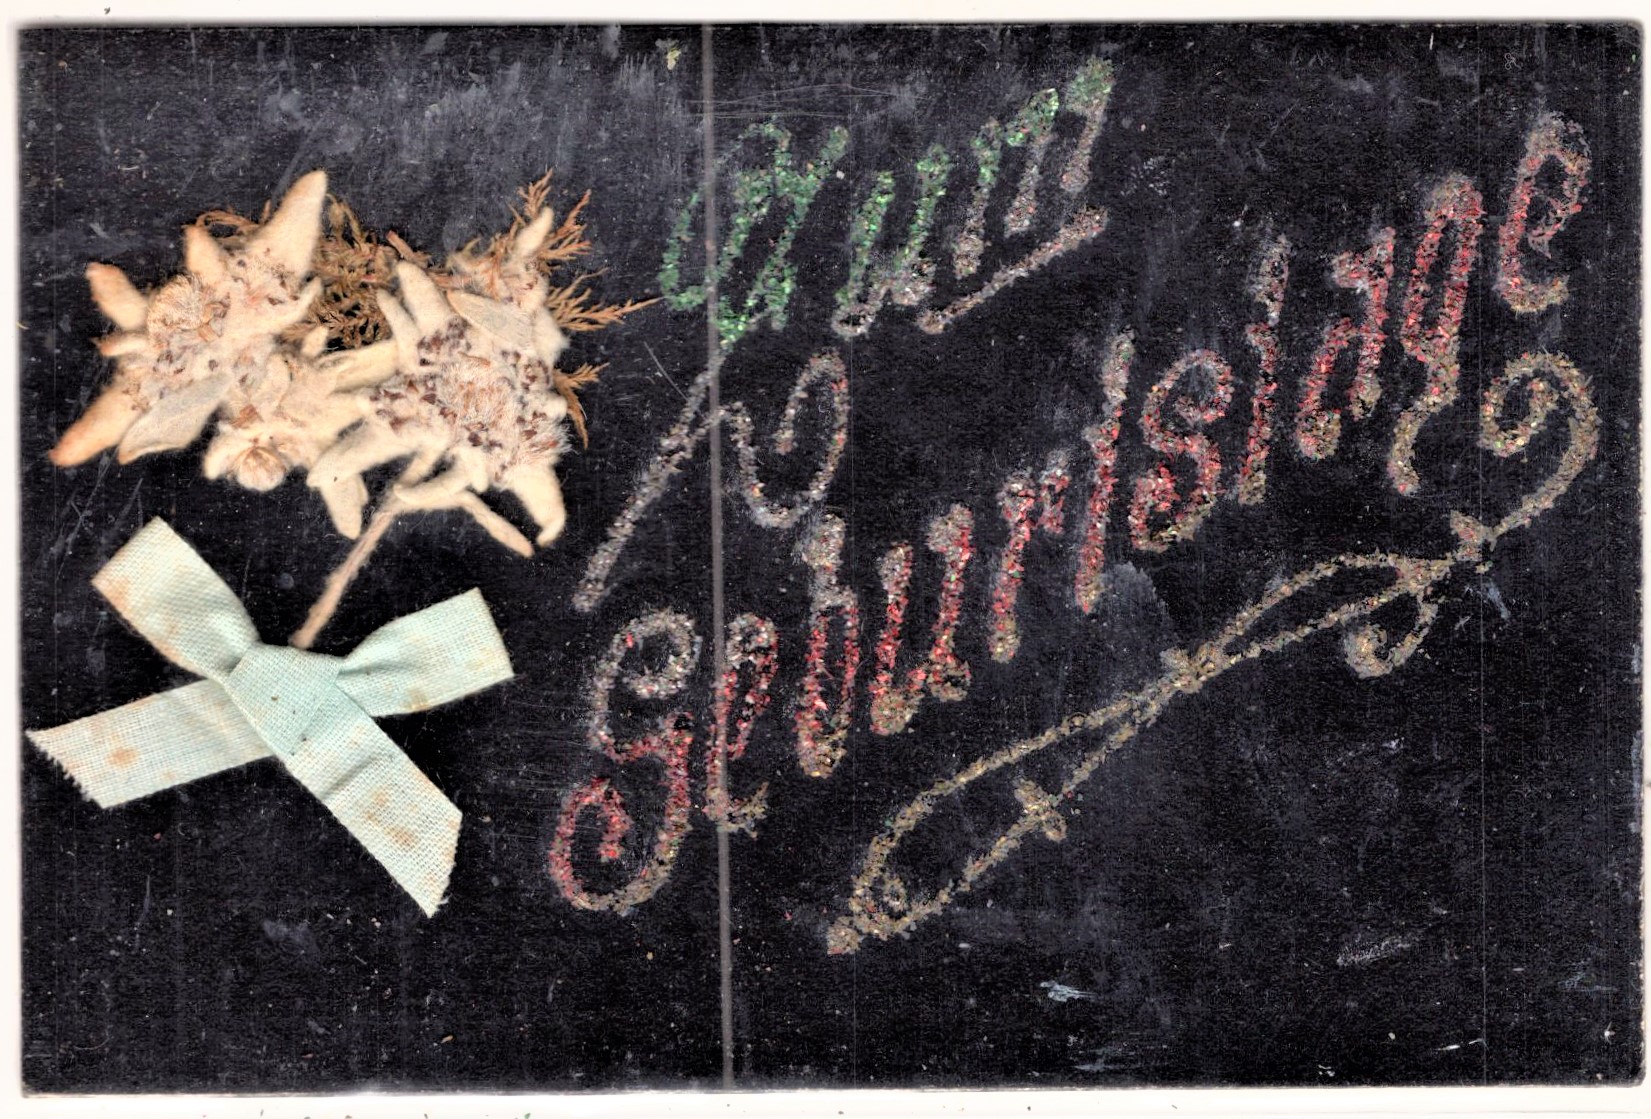 Zum
Geburtstage